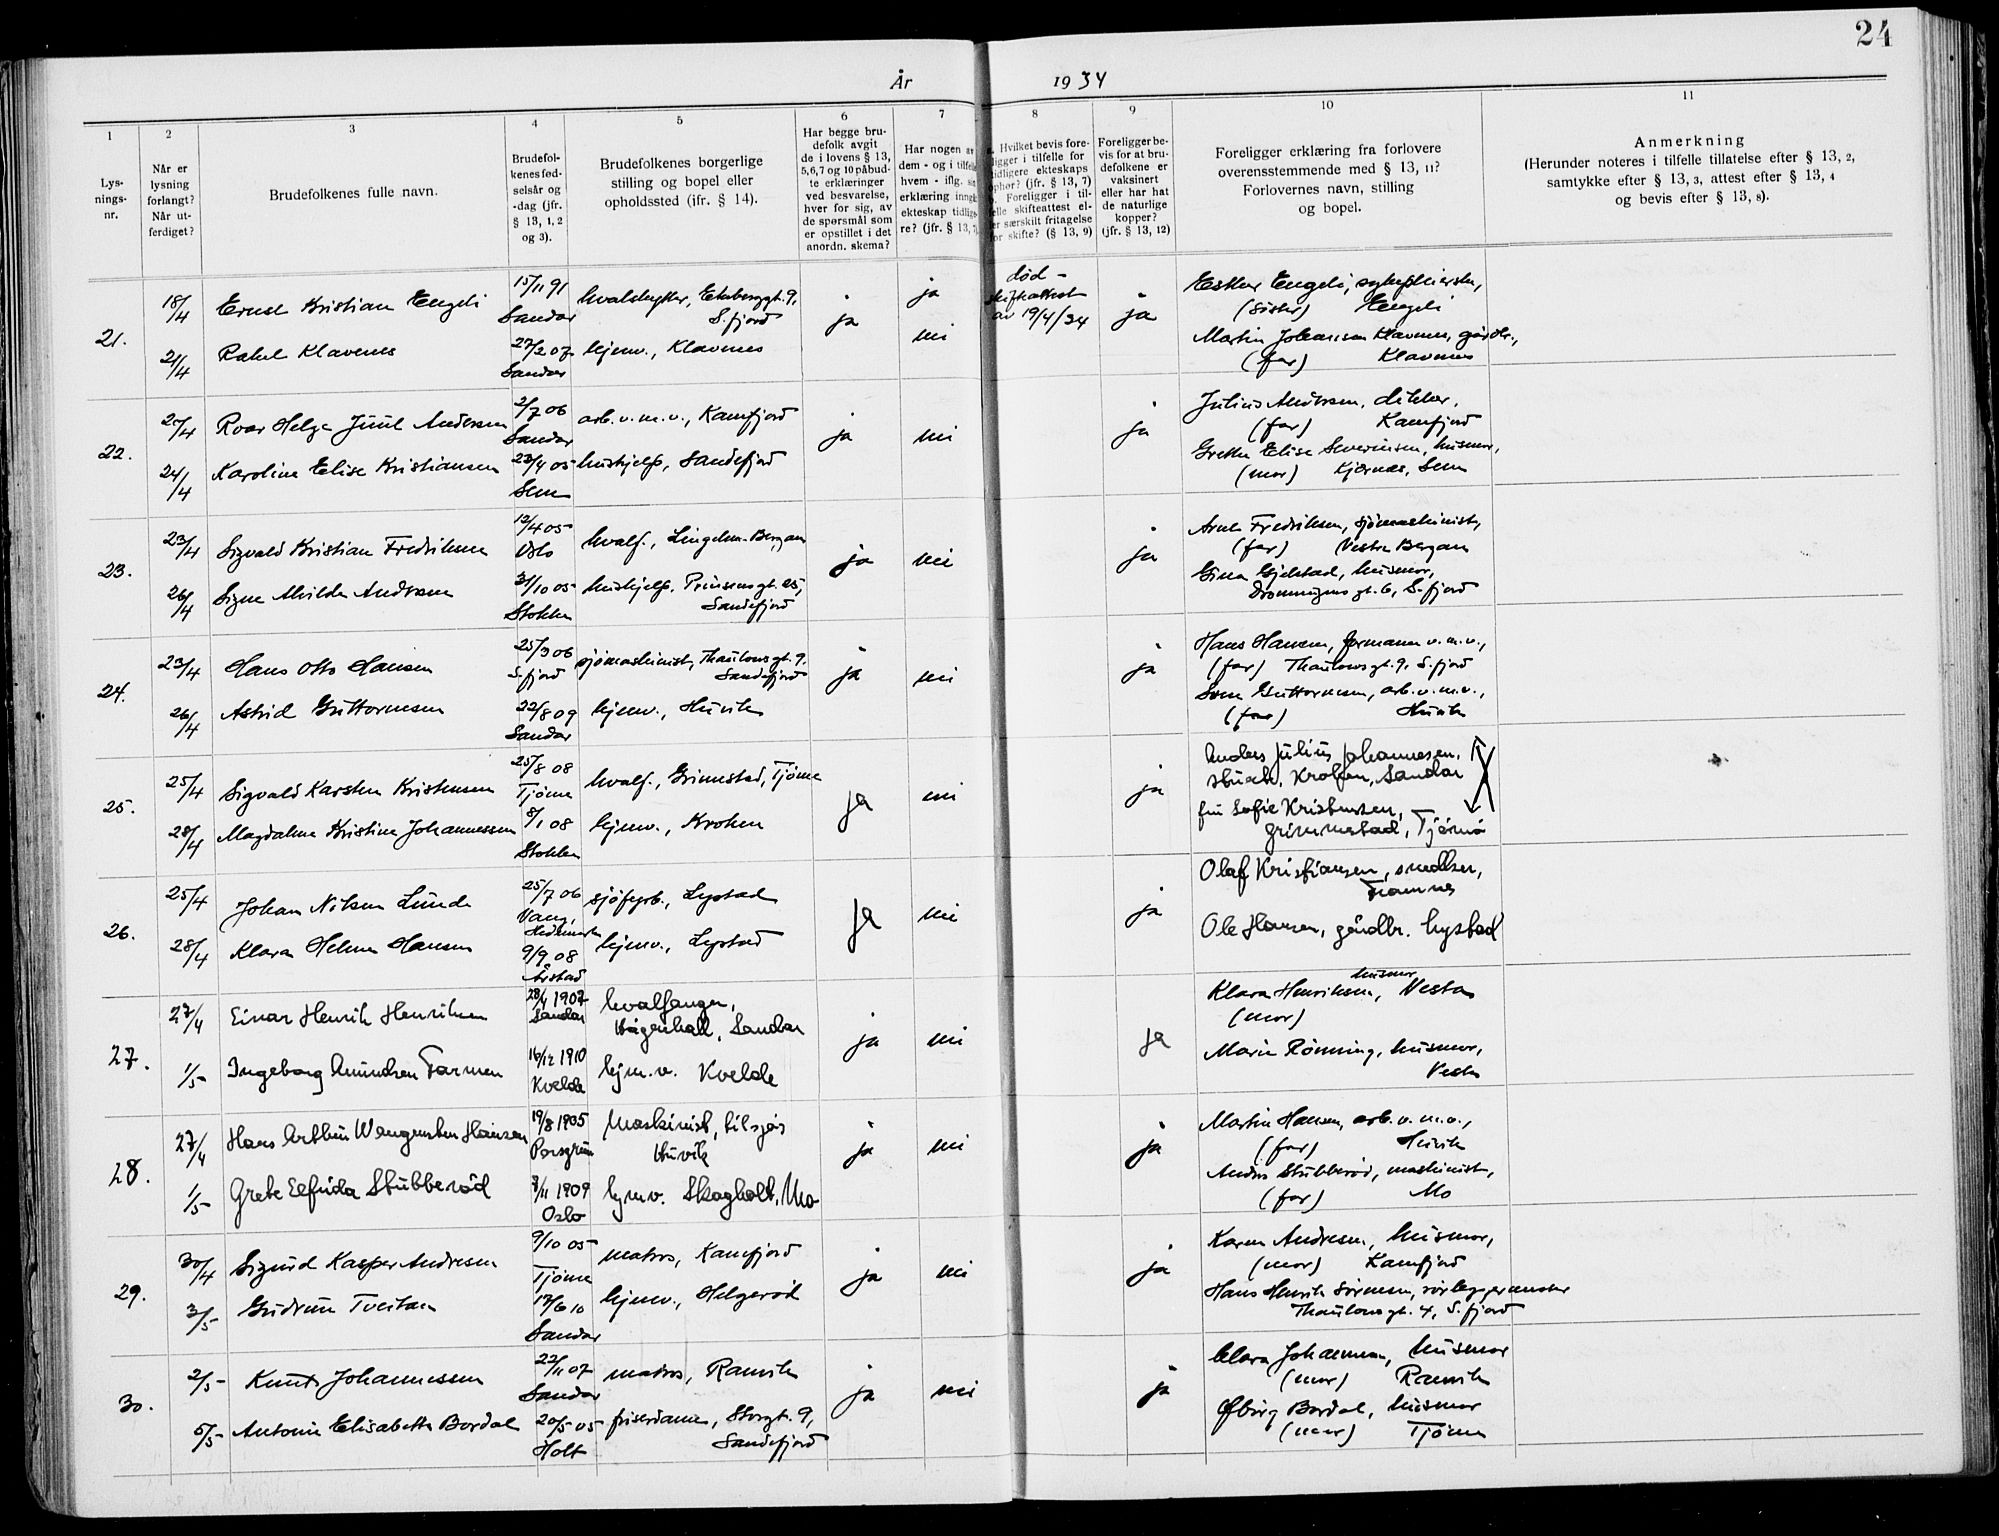 24
År 1934
1 2 3 4 5 6 7 8 9 10 11
Lys-
nings-
nr.
Når er
lysning
forlangt?
Når ut-
ferdiget?
Brudefolkenes fulle navn.
Brudefol-
kenes fød-
selsår og
-dag (jfr.
§ 13, 1, 2
og 3).
Brudefolkenes borgerlige
stilling og bopel eller
opholdssted (ifr. § 14).
Har begge bru-
defolk avgit
de i lovens § 13,
5,6,7 og 10 påbud-
te erklæringer
ved besvarelse,
hver for sig, av
de spørsmål som
er opstillet i det
anordn. skema?
Har nogen av
dem - og i tilfelle
hvem - iflg.
erklæring inngå
ekteskap tidlige-
re? (jfr. § 13, 7)
Hvilket bevis fore-
ligger i tilfelle for
tidligere ekteskaps
ophør? (jfr. § 13, 7)
Foreligger i til-
felle skifteattest el-
er særskilt fritagelse
for skifte? (§ 13, 9)
Foreligger be-
vis for at bru-
defolkene er
vaksinert
eller har hat
de naturlige
kopper?
(jfr. § 13, 12)
Foreligger erklæring fra forlovere
overensstemmende med § 13, 11?
Forlovernes navn, stilling
og bopel.
Anmerkning
(Herunder noteres i tilfelle tillatelse efter § 13, 2,
samtykke efter § 13, 3, attest efter § 13, 4
og bevis efter § 13, 8).
21.
18/4 Ernst Kristian Engeli 15/11 91 Sandar hvalskytter, Ekeberggt. 9, S.fjord ja ja
død - skifteattest av 19/4/34 ja
Esther Engeli, sykepleierske,
(søster) Engeli
21/4 Rakel Klavenes 27/2 07 Sandar hjemv., Klavenes nei
Martin Johansen Klavenes, gårdbr.,
(far) Klavenes
22.
20/4 Roar Helge Juul Andersen 2/7 06 Sandar arb. v. m. v., Kamfjord ja nei ja
Julius Andersen, dikker,
(far) Kamfjord
24/4 Karoline Elise Kristiansen 23/4 05 Sem hushjelp, Sandefjord
Grethe Elise Severinsen, husmor,
(mor) Kjærnes, Sem
23.
23/4 Sigvald Kristian Fredriksen 12/4 05 Oslo hvalf., Lingelem-Bergan ja nei ja
Arne Fredriksen, sjømaskinist,
(far) Vestre Bergan
26/4 Signe Alvilde Andersen 31/10 05 Stokke hushjelp, Prinsensgt. 25, Sandefjord
Gina Gjelstad, husmor,
Dronningens gt. 6, S.fjord
24.
23/4 Hans Otto Hansen 25/3 06 S.fjord sjømaskinist, Thaulowsgt. 9, Sandefjord ja nei ja
Hans Hansen, formann v. m. v.,
(far) Thaulowsgt. 9, S.fjord
26/4 Astrid Guttormsen 22/8 09 Sandar hjemv., Huvik
Guttormsen, arb. v. m. v.,
(far) Huvik
25.
25/4 Sigvald Karsten Kristensen 25/8 08 Tjøme hvalf., Grimestad, Tjøme ja nei ja
Anders Julius Johannesen,
Krokan, Sandar
28/4 Magdalene Kristine Johannessen 8/1 08 Stokke hjemv., Kroken
fru Sofie Kristensen,
Grimmestad, Tjømø
26.
25/4 Johan Nilsen Lunde 25/7 06 Vang, Hedemark sjøfyrb., Lystad ja nei ja
Olaf Kristiansen, snedker,
Framnes
28/4 Klara Helene Hansen 9/9 08 Årstad hjemv., Lystad
Ole Hansen, gårdbr. Lystad
27.
27/4 Einar Henrik Henriksen 28/4 1907 Sandar hvalfanger, Haugenhall, Sandar ja nei ja
Klara Henriksen, husmor Vesta
(mor)
1/5 Ingeborg Amundsen Farmen 16/12 1910 Kvelde hjm.v. Kvelde
Marie Rønning, husmor,
Vesta
28.
27/4 Hans Arthur Wangensten Hansen 19/8 1905 Porsgrun Maskinist, tilsjøs Huvik ja nei ja
Martin Hansen, arb. v. m. v.,
(far) Huvik
1/5 Grete Elfrida Stubberød 7/11 1909 Oslo hjmv. Skogholt, Mo
Anders Stubberød, maskinist,
(far) Mo
29.
30/4 Sigurd Kasper Andresen 9/10 05 Tjøme matros, Kamfjord ja nei ja
Karen Andresen, husmor,
(mor) Kamfjord
3/5 Gudrun Tveitan 17/6 10 Sandar hjemv., Helgerød
Hans Henrik Sørensen, rørleggermester
Thaulowsgt. 4, S.fjord
30.
2/5 Knut Johannessen 22/11 07 Sandar matros, Ranvik ja nei ja
Clara Johannessen, husmor
(mor) Ranvik
5/5 Antonie Elisabeth Bordal 20/5 05 Holt friserdame, Storgt. 9, Sandefjord
Bordal, husmor
(mor) Tjøme